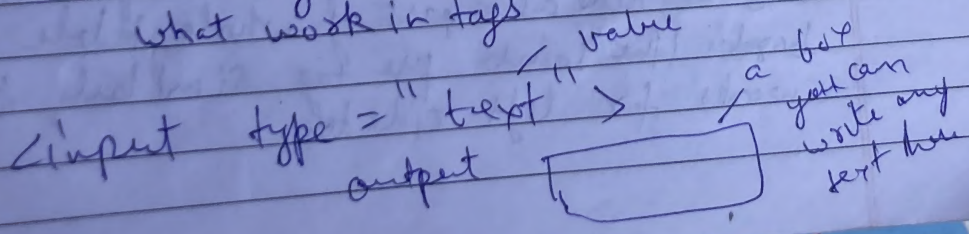 what work in tags
value
<input type="text">
output
a box
you can
write any
text here